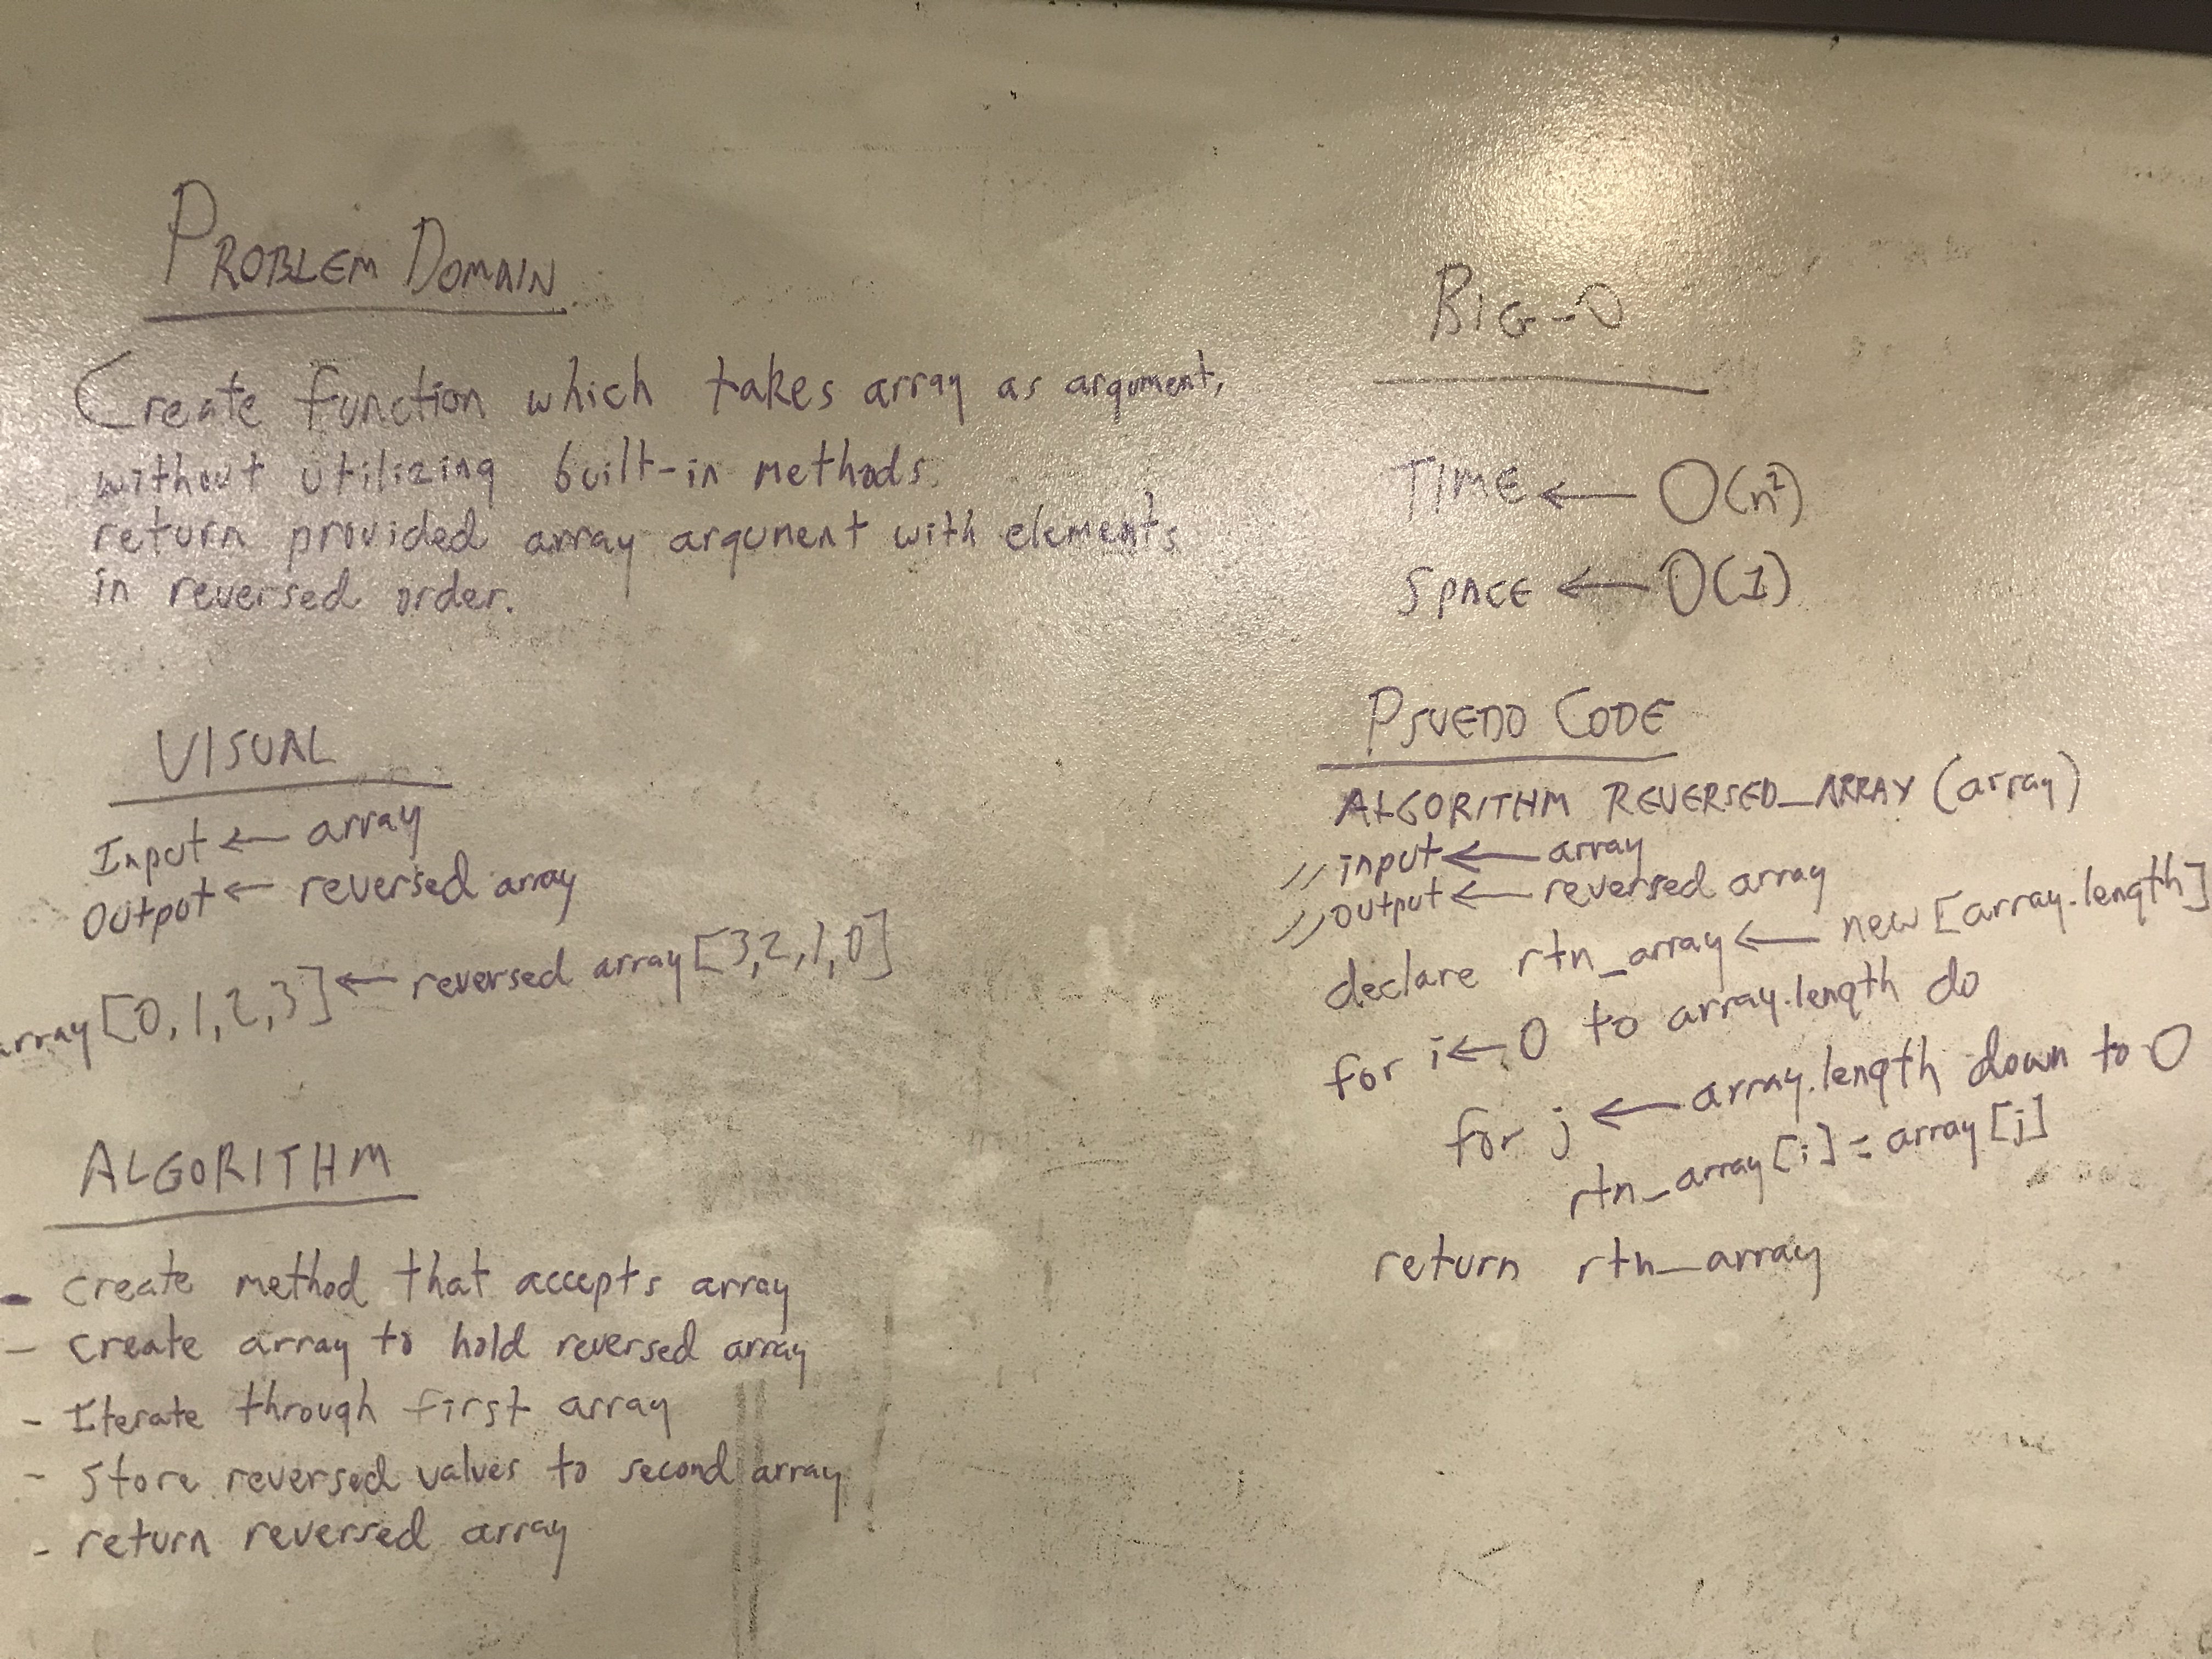 PROBLEM DOMAIN
Create function which takes array as argument,
without utilizing built-in methods.
return provided array argument with elements
in reversed order.
VISUAL
Input ← array
Output ← reversed array
array [0, 1, 2, 3] ← reversed array [3, 2, 1, 0]
ALGORITHM
- create method that accepts array
- create array to hold reversed array
- Iterate through first array
- Store reversed values to second array
- return reversed array
BIG-O
TIME ← O(n²)
SPACE ← O(1)
PSUEDO CODE
ALGORITHM REVERSED_ARRAY (array)
// input ← array
// output ← reversed array
declare rtn_array ← new [array.length]
for i ← 0 to array.length do
for j ← array.length down to 0
rtn_array [i] = array [j]
return rtn_array